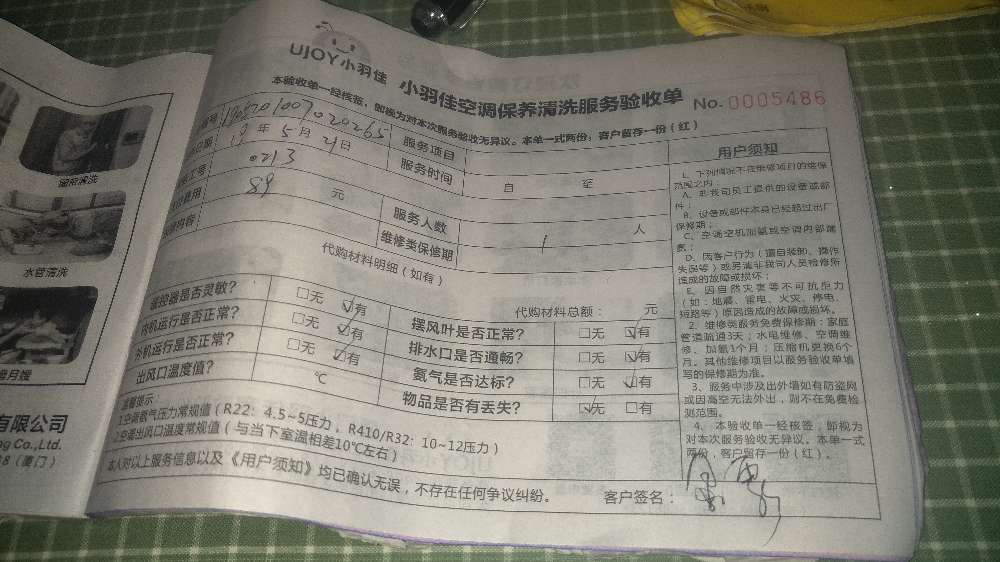 UJOY小羽佳
小羽佳空调保养清洗服务验收单
No.0005486
本验收单一经核签，即视为对本次服务验收无异议。本单一式两份，客户留存一份（红）
编号
服务项目
日期
19年5月21日
服务时间
自 至
工号
0213
费用
89 元
服务人数
1 人
内容
维修类保修期
代购材料明细（如有）
代购材料总额： 元
遥控器是否灵敏？
□无 ☑有
摆风叶是否正常？
□无 ☑有
内机运行是否正常？
□无 ☑有
排水口是否通畅？
□无 ☑有
外机运行是否正常？
□无 ☑有
氨气是否达标？
□无 ☑有
出风口温度值？
℃
物品是否有丢失？
☑无 □有
温馨提示：
1.空调氨气压力常规值（R22：4.5~5压力，R410/R32：10~12压力）
2.空调出风口温度常规值（与当下室温相差10℃左右）
本人对以上服务信息以及《用户须知》均已确认无误，不存在任何争议纠纷。
客户签名：
用户须知
1、下列情况不在维修项目的维保
范围之内：
A、非我司员工提供的设备或部
件；
B、设备或部件本身已经超过出厂
保修期；
C、空调空机加氨或空调内部漏
氨；
D、因客户行为（擅自装卸、操作
失误等）或另请非我司人员检修所
造成的故障或损坏；
E、因自然灾害等不可抗拒力
（如：地震、雷电、火灾、停电、
短路等）原因造成的故障或损坏。
2、维修类服务免费保修期：家庭
管道疏通3天；水电维修、空调维
修、加氨1个月；压缩机更换6个
月。其他维修项目以服务验收单填
写的保修期为准。
3、服务中涉及出外墙如有防盗网
或因高空无法外出，则不在免费检
测范围。
4、本验收单一经核签，即视为
对本次服务验收无异议。本单一式
两份，客户留存一份（红）。
水管清洗
月嫂
有限公司
ng Co.,Ltd.
8（厦门）